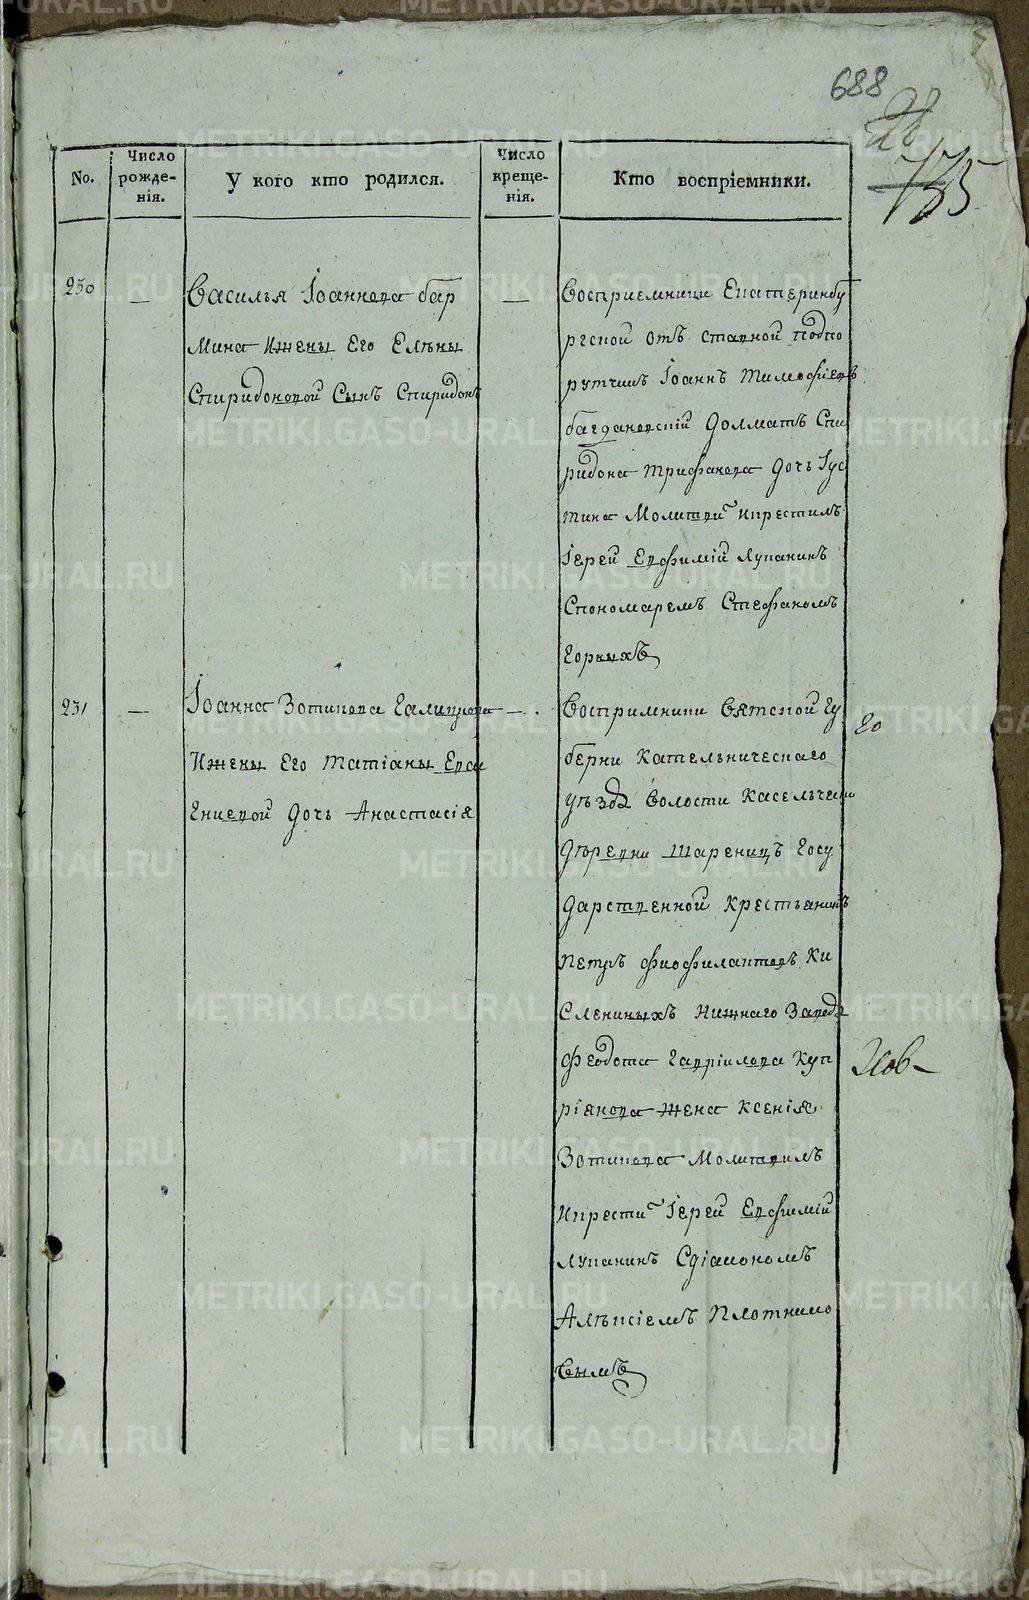 688
28
775
No.
Число рожде- нія.
У кого кто родился.
Число креще- нія.
Кто воспріемники.
230
—
Василья Іоаннова бар
мина ижены Его Елѣны
Спиридоновой Сынъ Спиридонъ
—
Восприемници Екатеринбу
ргской отъ ставной подпо
рутчикъ Іоаннъ Тимофѣевъ
багдановскій Долматъ Спи
ридона трифанова дочь Іус
тина Молитви икрестилъ
Іерей Евфимій Лупанинъ
Спономаремъ Стефаномъ
горныхъ
231
—
Іоанна Зотикова галицкова
Ижены Его татіаны Евсе
гниевой дочь Анастасія
—
Воспримники Вятской гу
берни Кательническаго
уѣзда Волости касельчено
дѣревни шареницъ госу
дарственной крестьянинъ
петръ фиофилактовъ ки
слениныхъ нижнаго завода
феодота гавріилова куп
ріянова жена ксенія
Зотикова Молитвилъ
Икрести Іерей Евфимій
лупанинъ Сдіакономъ
Алѣксіемъ плотнико
вымъ
го
METRIKI.GASO-URAL.RU